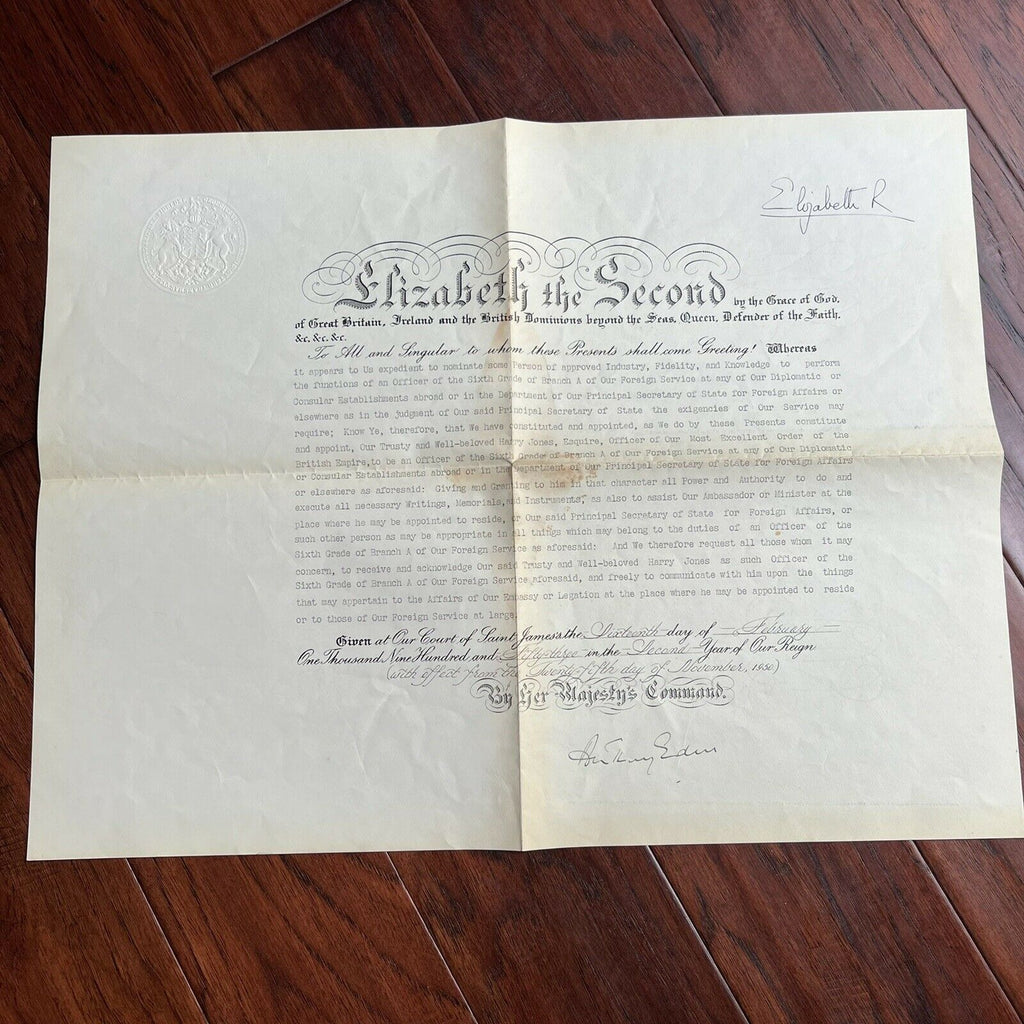 Elizabeth R
Elizabeth the Second by the Grace of God,
of Great Britain, Ireland and the British Dominions beyond the Seas, Queen, Defender of the Faith,
&c, &c, &c.
To All and Singular to whom these Presents shall come Greeting! Whereas
it appears to Us expedient to nominate some Person of approved Industry, Fidelity, and Knowledge to perform
the functions of an Officer of the Sixth Grade of Branch A of Our Foreign Service at any of Our Diplomatic or
Consular Establishments abroad or in the Department of Our Principal Secretary of State for Foreign Affairs or
elsewhere as in the judgment of Our said Principal Secretary of State the exigencies of Our Service may
require; Know Ye, therefore, that We have constituted and appointed, as We do by these Presents constitute
and appoint, Our Trusty and Well-beloved Harry Jones, Esquire, Officer of Our Most Excellent Order of the
British Empire, to be an Officer of the Sixth Grade of Branch A of Our Foreign Service at any of Our Diplomatic
or Consular Establishments abroad or in the Department of Our Principal Secretary of State for Foreign Affairs
or elsewhere as aforesaid: Giving and Granting to him in that character all Power and Authority to do and
execute all necessary Writings, Memorials, and Instruments, as also to assist Our Ambassador or Minister at the
place where he may be appointed to reside, or Our said Principal Secretary of State for Foreign Affairs, or
such other person as may be appropriate in all things which may belong to the duties of an Officer of the
Sixth Grade of Branch A of Our Foreign Service as aforesaid: And We therefore request all those whom it may
concern, to receive and acknowledge Our said Trusty and Well-beloved Harry Jones as such Officer of the
Sixth Grade of Branch A of Our Foreign Service aforesaid, and freely to communicate with him upon the things
that may appertain to the Affairs of Our Embassy or Legation at the place where he may be appointed to reside
or to those of Our Foreign Service at large.
Given at Our Court of Saint James's the Sixteenth day of February
One Thousand Nine Hundred and Fifty-three in the Second Year of Our Reign
(with effect from the Twenty-fifth day of November, 1950)
By Her Majesty's Command.
Anthony Eden